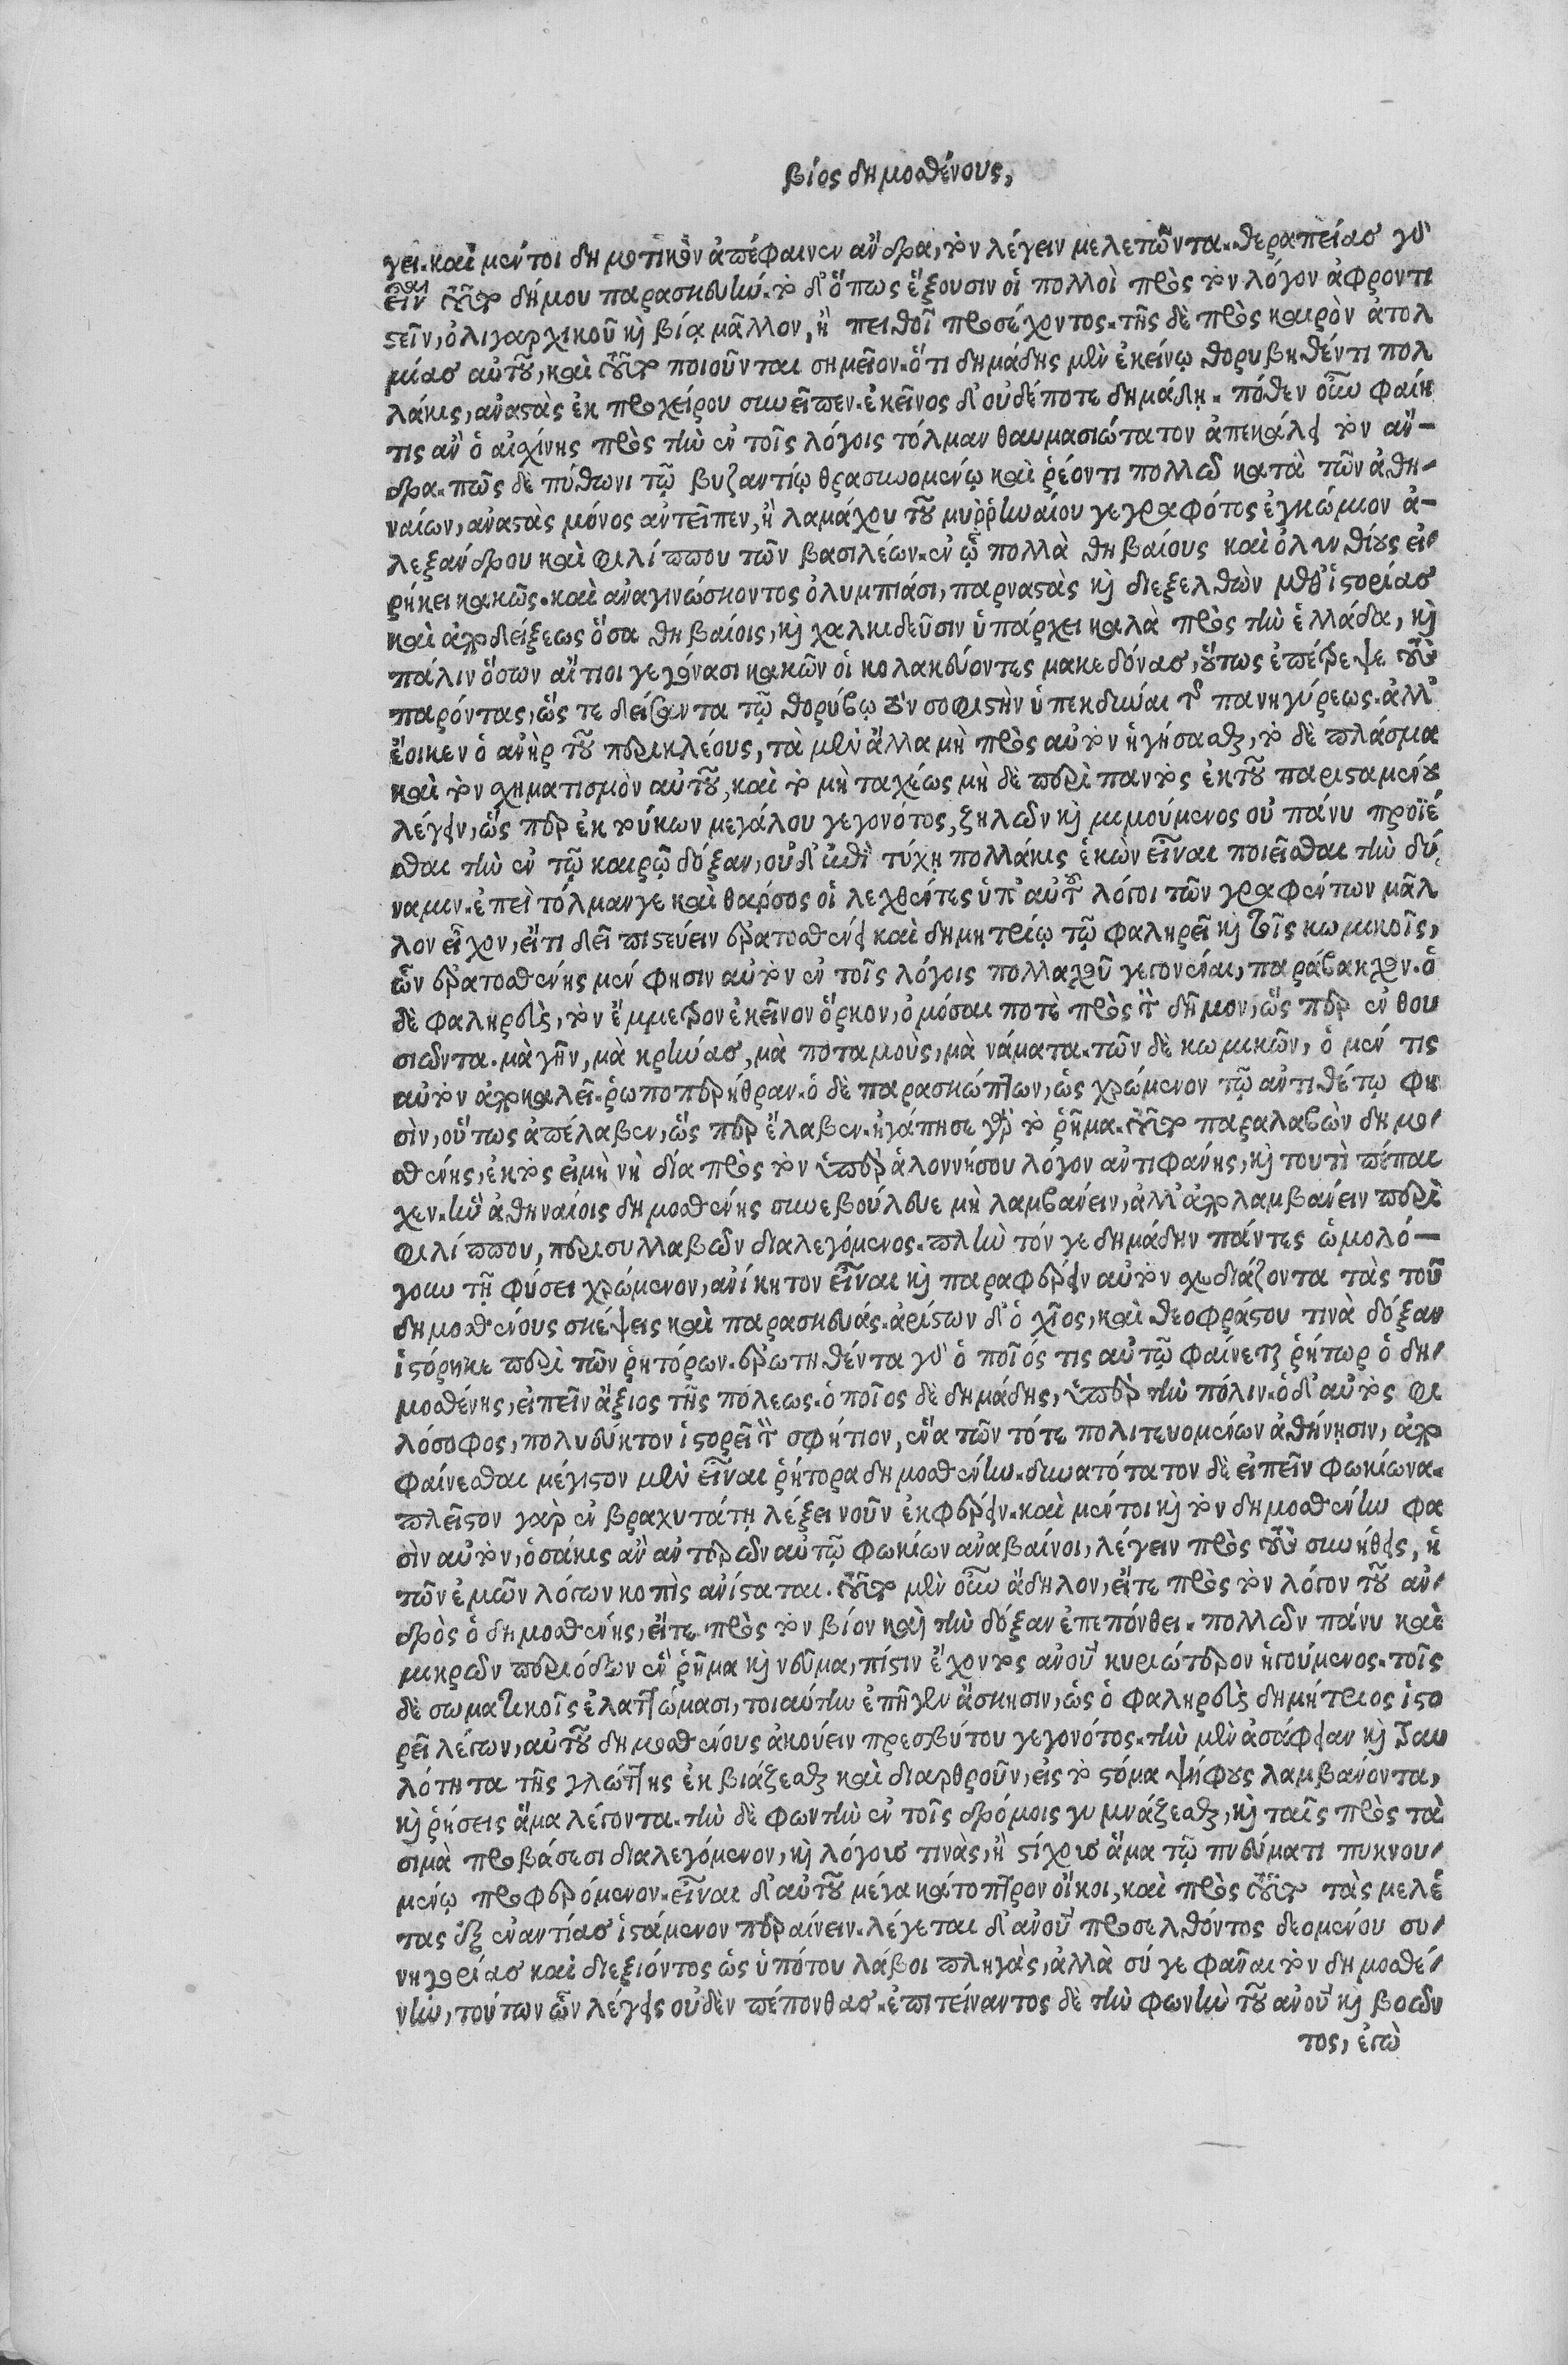 βίος δημοσθένους,
γει. καὶ μέντοι δημοτικὸν ἀπέφαινεν ἄνδρα, τὸν λέγειν μελετῶντα. θεραπείασ γὸ
εἶναι τοῦτο δήμου παρασκευὴν. τὸ δ' ὅπως ἕξουσιν οἱ πολλοὶ πρὸς τὸν λόγον ἀφροντι
στεῖν, ὀλιγαρχικοῦ καὶ βίᾳ μᾶλλον, ἢ πειθοῖ προσέχοντος. τῆς δὲ πρὸς καιρὸν ἀτολ
μίασ αὐτοῦ, καὶ τοῦτο ποιοῦνται σημεῖον. ὅτι δημάδης μὲν ἐκείνῳ θορυβηθέντι πολ
λάκις, ἀναστὰς ἐκ προχείρου συνεῖπεν. ἐκεῖνος δ' οὐδέποτε δημάδῃ. πόθεν οὖν φαίη
τις ἂν ὁ αἰσχίνης πρὸς τὴν ἐν τοῖς λόγοις τόλμαν θαυμασιώτατον ἀπεκάλει τὸν ἄν-
δρα. πῶς δὲ πύθωνι τῷ βυζαντίῳ θρασυνομένῳ καὶ ῥέοντι πολλῷ κατὰ τῶν ἀθη-
ναίων, ἀναστὰς μόνος ἀντεῖπεν, ἢ λαμάχου τοῦ μυῤῥηναίου γεγραφότος ἐγκώμιον ἀ-
λεξάνδρου καὶ φιλίππου τῶν βασιλέων. ἐν ᾧ πολλὰ θηβαίους καὶ ὀλυνθίους εἰ-
ρήκει κακῶς. καὶ ἀναγινώσκοντος ὀλυμπιάσι, παρναστὰς καὶ διεξελθὼν μεθ' ἱστορίασ
καὶ ἀποδείξεως ὅσα θηβαίοις, καὶ χαλκιδεῦσιν ὑπάρχει καλὰ πρὸς τὴν ἑλλάδα, καὶ
πάλιν ὅσων αἴτιοι γεγόνασι κακῶν οἱ κολακεύοντες μακεδόνασ, οὕτως ἐπέστρεψε τοὺς
παρόντας, ὥς τε δείσαντα τῷ θορύβῳ τὸν σοφιστὴν ὑπεκδῦναι τῆς πανηγύρεως. ἀλλ'
ἔοικεν ὁ ἀνὴρ τοῦ περικλέους, τὰ μὲν ἄλλα μὴ πρὸς αὐτὸν ἡγήσασθαι, τὸ δὲ πλάσμα
καὶ τὸν σχηματισμὸν αὐτοῦ, καὶ τὸ μὴ ταχέως μὴ δὲ περὶ παντὸς ἐκ τοῦ παρισταμένου
λέγειν, ὥς περ ἐκ τούτων μεγάλου γεγονότος, ζηλῶν καὶ μιμούμενος οὐ πάνυ προϊέ
σθαι τὴν ἐν τῷ καιρῷ δόξαν, οὐδ' ἐπὶ τύχῃ πολλάκις ἑκὼν εἶναι ποιεῖσθαι τὴν δύ-
ναμιν. ἐπεὶ τόλμαν γε καὶ θαρσος οἱ λεχθέντες ὑπ' αὐτοῦ λόγοι τῶν γραφέντων μᾶλ
λον εἶχον, εἴ τι δεῖ πιστεύειν ἐρατοσθένει καὶ δημητρίῳ τῷ φαληρεῖ καὶ τοῖς κωμικοῖς,
ὧν ἐρατοσθένης μέν φησιν αὐτὸν ἐν τοῖς λόγοις πολλαχοῦ γεγονέναι, παράβακχον. ὁ
δὲ φαληρεὺς, τὸν ἔμμετρον ἐκεῖνον ὅρκον, ὀμόσαι ποτὲ πρὸς τὸν δῆμον, ὥς περ ἐν θου
σιῶντα. μὰ γῆν, μὰ κρήνασ, μὰ ποταμοὺς, μὰ νάματα. τῶν δὲ κωμικῶν, ὁ μέν τις
αὐτὸν ἀποκαλεῖ. ῥωποπερπερήθραν. ὁ δὲ παρασκώπτων, ὡς χρώμενον τῷ ἀντιθέτῳ φη
σὶν, οὕτως ἀπέλαβεν, ὥς περ ἔλαβεν. ἠγάπησε γὰρ τὸ ῥῆμα. τοῦτο παραλαβὼν δημο-
σθένης, ἐκτὸς εἰ μὴ νὴ δία πρὸς τὸν ὑπὲρ ἁλοννήσου λόγον ἀντιφάνης, καὶ τουτὶ πέπαι
χεν. ἣν ἀθηναίοις δημοσθένης συνεβούλευε μὴ λαμβάνειν, ἀλλ' ἀπολαμβάνειν περὶ
φιλίππου, περὶ συλλαβῶν διαλεγόμενος. πλὴν τόν γε δημάδην πάντες ὡμολό-
γουν τῇ φύσει χρώμενον, ἀνίκητον εἶναι καὶ παραφέρειν αὐτὸν σχεδιάζοντα τὰς τοῦ
δημοσθένους σκέψεις καὶ παρασκευάς. ἀρίστων δ' ὁ χῖος, καὶ θεοφράστου τινὰ δόξαν
ἱστόρηκε περὶ τῶν ῥητόρων. ἐρωτηθέντα γὸ ὁ ποῖός τις αὐτῷ φαίνεται ῥήτωρ ὁ δη-
μοσθένης, εἰπεῖν ἄξιος τῆς πόλεως. ὁ ποῖος δὲ δημάδης, ὑπὲρ τὴν πόλιν. ὁ δ' αὐτὸς φι
λόσοφος, πολύευκτον ἱστορεῖ τὸν σφήτιον, ἕνα τῶν τότε πολιτευομένων ἀθήνησιν, ἀπο
φαίνεσθαι μέγιστον μὲν εἶναι ῥήτορα δημοσθένην. δυνατότατον δὲ εἰπεῖν φωκίωνα.
πλεῖστον γὰρ ἐν βραχυτάτῃ λέξει νοῦν ἐκφέρειν. καὶ μέντοι καὶ τὸν δημοσθένην φα
σὶν αὐτὸν, ὁσάκις ἂν ἀντερῶν αὐτῷ φωκίων ἀναβαίνοι, λέγειν πρὸς τοὺς συνήθεις, ἡ
τῶν ἐμῶν λόγων κοπὶς ἀνίσταται. τοῦτο μὲν οὖν ἄδηλον, εἴτε πρὸς τὸν λόγον τοῦ ἀν-
δρὸς ὁ δημοσθένης, εἴτε πρὸς τὸν βίον καὶ τὴν δόξαν ἐπεπόνθει. πολλῶν πάνυ καὶ
μικρῶν περιόδων ἓν ῥῆμα καὶ νεῦμα, πίστιν ἔχοντος ἀνοῦ κυριώτερον ἡγούμενος. τοῖς
δὲ σωματικοῖς ἐλαττώμασι, τοιαύτην ἐπῆγεν ἄσκησιν, ὡς ὁ φαληρεὺς δημήτριος ἱστο
ρεῖ λέγων, αὐτοῦ δημοσθένους ἀκούειν πρεσβύτου γεγονότος. τὴν μὲν ἀσάφειαν καὶ τραυ
λότητα τῆς γλώττης ἐκβιάζεσθαι καὶ διαρθροῦν, εἰς τὸ στόμα ψήφους λαμβάνοντα,
καὶ ῥήσεις ἅμα λέγοντα. τὴν δὲ φωνὴν ἐν τοῖς δρόμοις γυμνάζεσθαι, καὶ ταῖς πρὸς τὰ
σιμὰ προβάσεσι διαλεγόμενον, καὶ λόγουσ τινὰς, ἢ στίχουσ ἅμα τῷ πνεύματι πυκνου-
μένῳ προφερόμενον. εἶναι δ' αὐτοῦ μέγα κάτοπτρον οἴκοι, καὶ πρὸς τοῦτο τὰς μελέ
τας ἐξ ἐναντίασ ἱστάμενον περαίνειν. λέγεται δ' ἀνοῦ προσελθόντος δεομένου συ-
νηγορίασ καὶ διεξιόντος ὡς ὑπό του λάβοι πληγὰς, ἀλλὰ σύ γε φᾶναι τὸν δημοσθέ-
νην, τούτων ὧν λέγεις οὐδὲν πέπονθασ. ἐπιτείναντος δὲ τὴν φωνὴν τοῦ ἀνοῦ καὶ βοῶν
τος, ἐγὼ